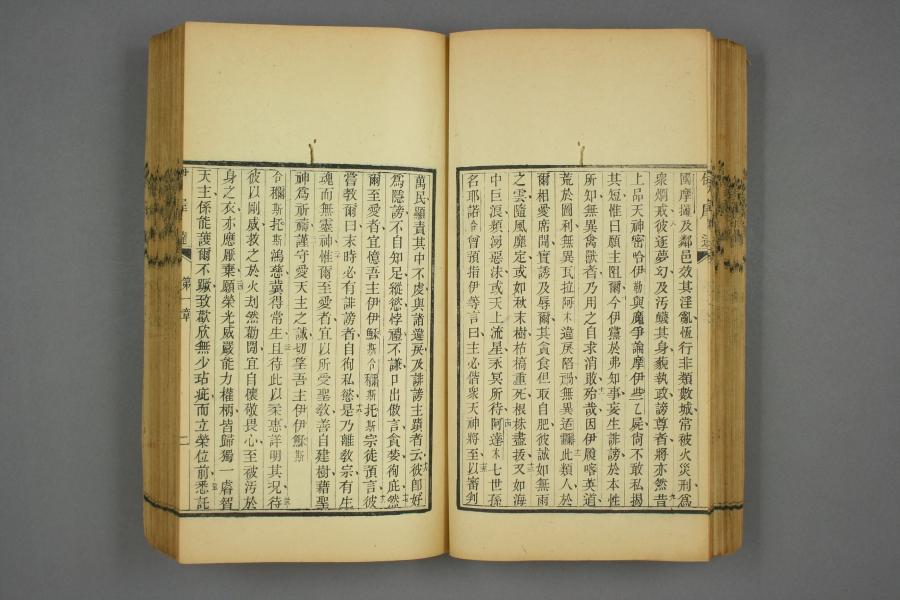 國摩摝及鄰邑效其淫亂恆行非類數城常被火災刑爲
衆烱戒彼逐夢幻及汚衊其身藐執政謗尊者將亦然昔
上品天神密哈伊勒與魔爭論摩伊些乙屍尙不敢私揭
其短惟曰願主阻爾今伊黨於弗知事妄生誹謗於本性
所知無異禽獸者乃用之自求消敢殆哉因伊履喀英道
荒於圖利無異瓦拉阿木違戾陷禍無異適嚻此類人於
爾相愛席間實謗及辱爾其貪食但取自肥彼誠如無雨
之雲隨風靡定或如秋末樹枯槁重死根株盡拔又如海
中巨浪頻漰惡洙或天上流星永冥所待阿達木七世孫
名耶諾合曾預指伊等言曰主必偕衆天神將至以審判
萬民顯責其中不虔與諸違戾及誹謗主蹟者云彼卽好
爲隱謗不自知足縱慾悖禮不謙口出傲言貪麥徇庇然
爾至愛者宜憶吾主伊伊穌斯合穪斯托斯宗徒預言彼
嘗教爾曰末時必有誹謗者自徇私慾是乃離教宗有生
魂而無靈神惟爾至愛者宜以所受聖教善自建樹藉聖
神爲祈禱謹守愛天主之誡切望吾主伊伊穌斯
合穪斯托斯鴻慈冀得常生且待此以柔惠詳明其況待
彼以剛威救之於火刦然勸閒宜自懷敬畏心至被汚於
身之衣亦應厭棄願榮光威嚴能力權柄皆歸獨一睿智
天主係能護爾不蹶致歡欣無少玷疵而立榮位前悉託
第一章
二